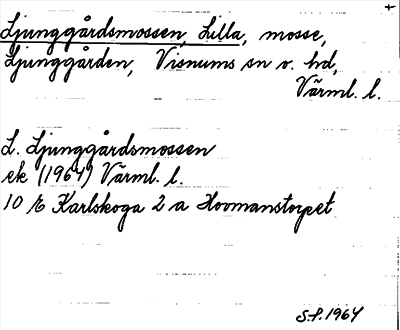 Ljunggårdsmossen, Lilla, mosse,
Ljunggården, Visnums sn v. hd,
Värml. l.
L. Ljunggårdsmossen
ek (1964) Värml. l.
10 E Karlskoga 2 a Hovmanstorpet
S.P. 1964